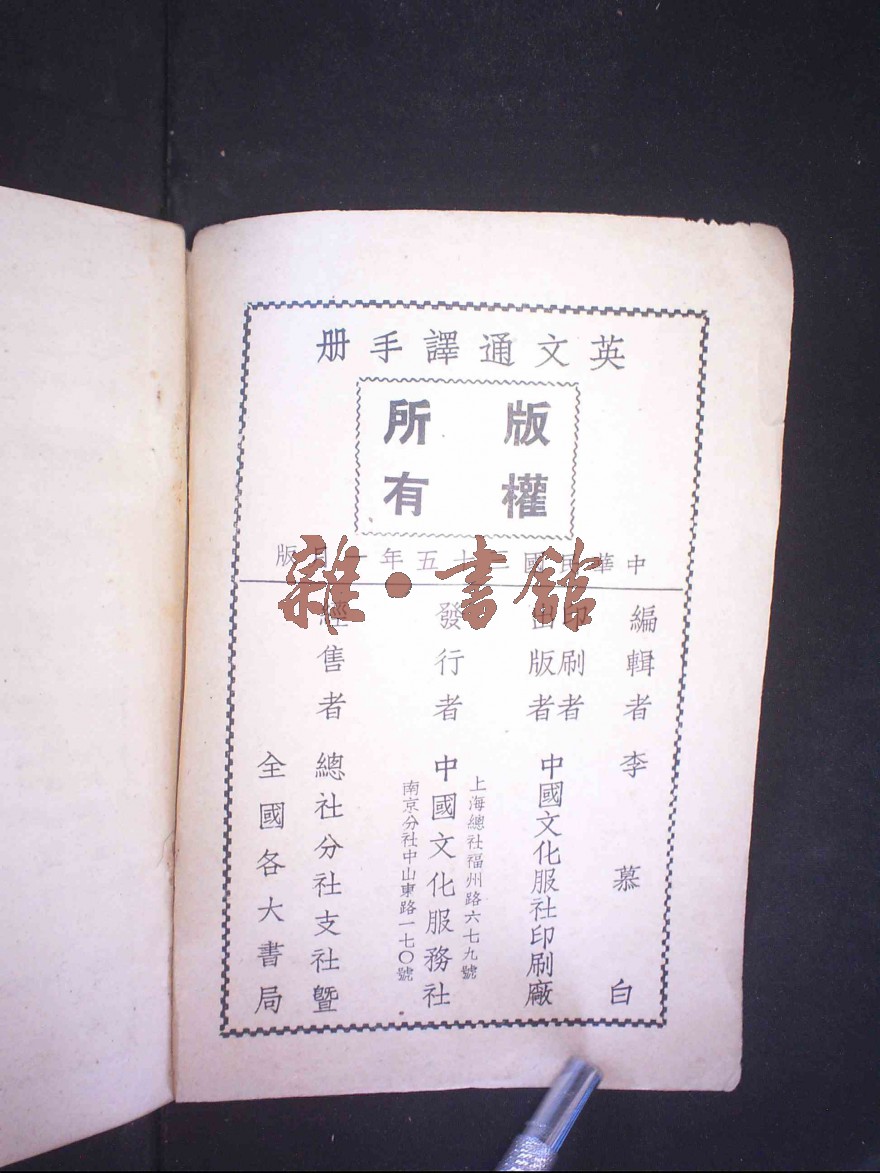 英文通譯手册
版權所有
中華民國三十五年一月版
編輯者 李慕白
印刷者
出版者 中國文化服社印刷廠
發行者 中國文化服務社
上海總社福州路六七九號
南京分社中山東路一七〇號
經售者 總社分社支社暨
全國各大書局
雜·書館